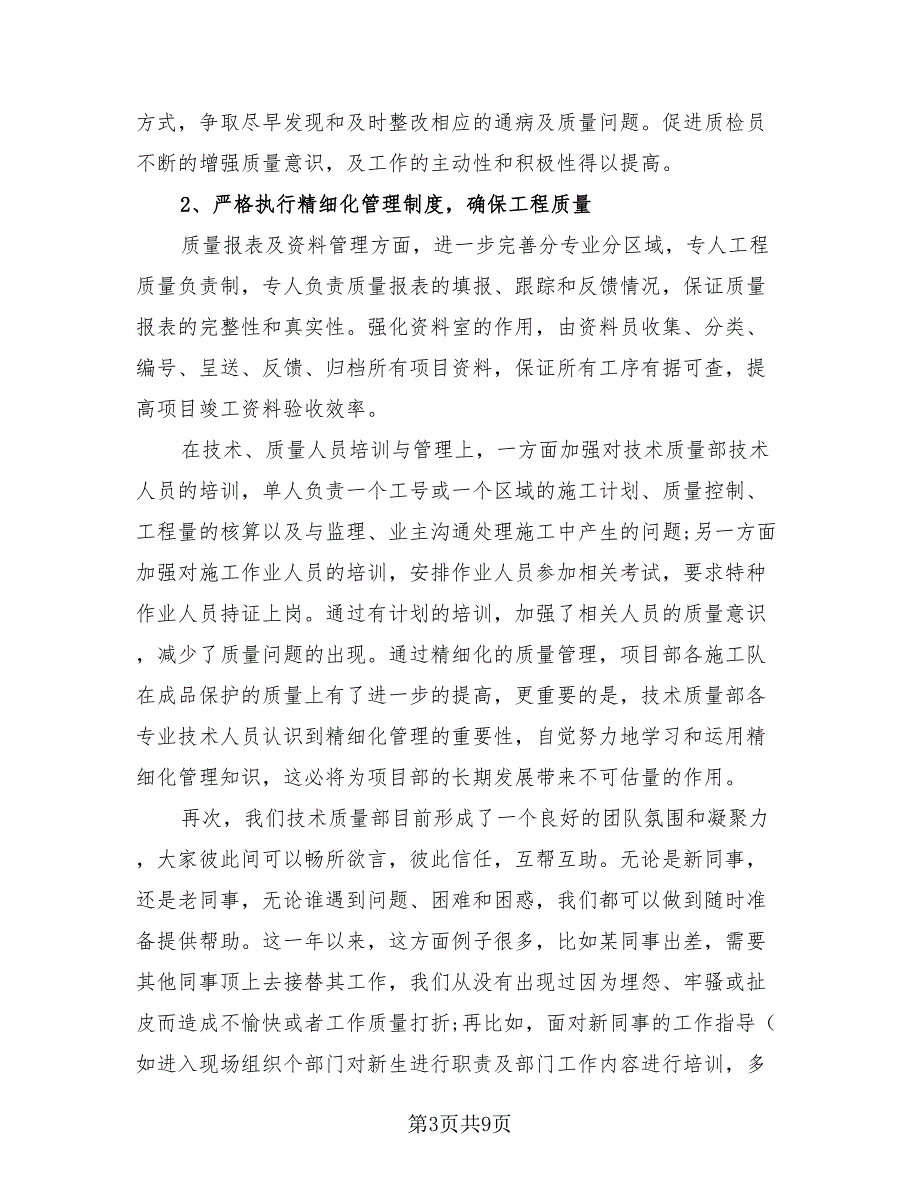 方式，争取尽早发现和及时整改相应的通病及质量问题。促进质检员
不断的增强质量意识，及工作的主动性和积极性得以提高。
2、严格执行精细化管理制度，确保工程质量
质量报表及资料管理方面，进一步完善分专业分区域，专人工程
质量负责制，专人负责质量报表的填报、跟踪和反馈情况，保证质量
报表的完整性和真实性。强化资料室的作用，由资料员收集、分类、
编号、呈送、反馈、归档所有项目资料，保证所有工序有据可查，提
高项目竣工资料验收效率。
在技术、质量人员培训与管理上，一方面加强对技术质量部技术
人员的培训，单人负责一个工号或一个区域的施工计划、质量控制、
工程量的核算以及与监理、业主沟通处理施工中产生的问题;另一方面
加强对施工作业人员的培训，安排作业人员参加相关考试，要求特种
作业人员持证上岗。通过有计划的培训，加强了相关人员的质量意识
，减少了质量问题的出现。通过精细化的质量管理，项目部各施工队
在成品保护的质量上有了进一步的提高，更重要的是，技术质量部各
专业技术人员认识到精细化管理的重要性，自觉努力地学习和运用精
细化管理知识，这必将为项目部的长期发展带来不可估量的作用。
再次，我们技术质量部目前形成了一个良好的团队氛围和凝聚力
，大家彼此间可以畅所欲言，彼此信任，互帮互助。无论是新同事，
还是老同事，无论谁遇到问题、困难和困惑，我们都可以做到随时准
备提供帮助。这一年以来，这方面例子很多，比如某同事出差，需要
其他同事顶上去接替其工作，我们从没有出现过因为埋怨、牢骚或扯
皮而造成不愉快或者工作质量打折;再比如，面对新同事的工作指导（
如进入现场组织个部门对新生进行职责及部门工作内容进行培训，多
第3页共9页